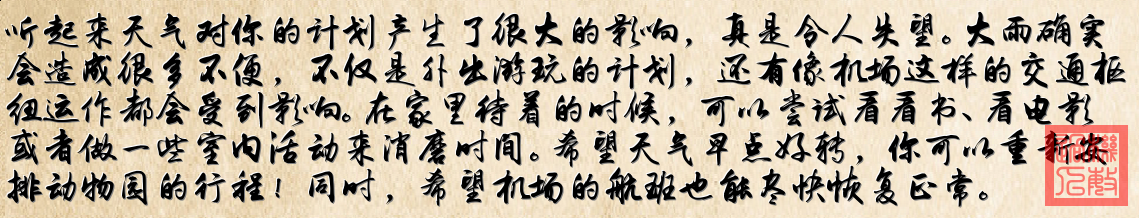 听起来天气对你的计划产生了很大的影响，真是令人失望。大雨确实
会造成很多不便，不仅是外出游玩的计划，还有像机场这样的交通枢
纽运作都会受到影响。在家里待着的时候，可以尝试看看书、看电影
或者做一些室内活动来消磨时间。希望天气早点好转，你可以重新安
排动物园的行程！同时，希望机场的航班也能尽快恢复正常。